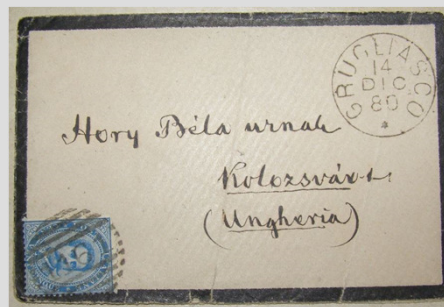 GRUGLIASCO
14
DIC
80
Hory Béla urnak
Kolozsvárt
(Ungheria)